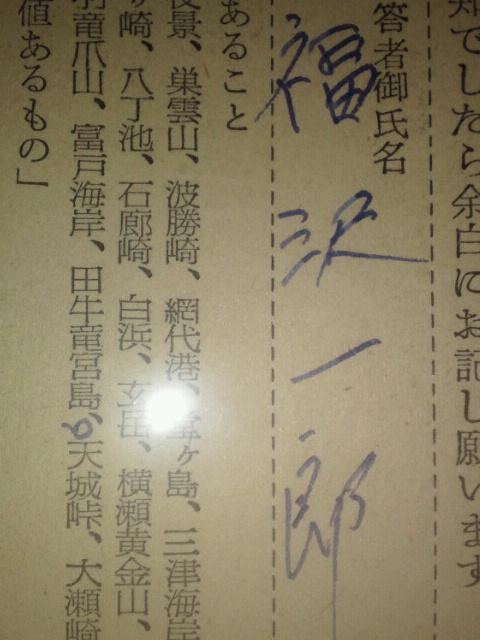 知でしたら余白にお記し願います
答者御氏名
福沢一郎
あること
夜景、巣雲山、波勝崎、網代港、堂ヶ島、三津海岸
ヶ崎、八丁池、石廊崎、白浜、玄岳、横瀬黄金山、
羽竜爪山、富戸海岸、田牛竜宮島、天城峠、大瀬崎
値あるもの」